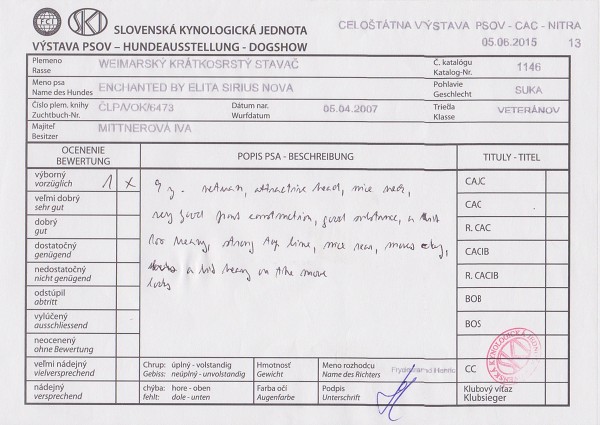 FCI SKJ SLOVENSKÁ KYNOLOGICKÁ JEDNOTA
VÝSTAVA PSOV – HUNDEAUSSTELLUNG - DOGSHOW
CELOŠTÁTNA VÝSTAVA PSOV - CAC - NITRA
05.06.2015 13
Plemeno WEIMARSKÝ KRÁTKOSRSTÝ STAVAČ Č. katalógu 1146
Rasse Katalog-Nr.
Meno psa ENCHANTED BY ELITA SIRIUS NOVA Pohlavie SUKA
Name des Hundes Geschlecht
Číslo plem. knihy ČLP/VOK/6473 Dátum nar. 05.04.2007 Trieda VETERÁNOV
Zuchtbuch-Nr. Wurfdatum Klasse
Majiteľ MITTNEROVÁ IVA
Besitzer
OCENENIE POPIS PSA - BESCHREIBUNG TITULY - TITEL
BEWERTUNG
výborný 1 x
vorzüglich
veľmi dobrý
sehr gut
dobrý
gut
dostatočný
genügend
nedostatočný
nicht genügend
odstúpil
abtritt
vylúčený
ausschliessend
neocenený
ohne Bewertung
veľmi nádejný
vielversprechend
nádejný
versprechend
9 y. attractive head, nice neck,
very good construction, good substance, a
too heavy, strong top line, nice rear,
a bid heavy on the move
looks
CAJC
CAC
R. CAC
CACIB
R. CACIB
BOB
BOS
CC
Klubový víťaz
Klubsieger
Chrup: úplný - volstandig Hmotnosť Meno rozhodcu
Gebiss: neúplný - unvolstandig Gewicht Name des Richters
chýba: hore - oben Farba očí Podpis
fehlt: dole - unten Augenfarbe Unterschrift
SLOVENSKÁ KYNOLOGICKÁ JEDNOTA SKJ